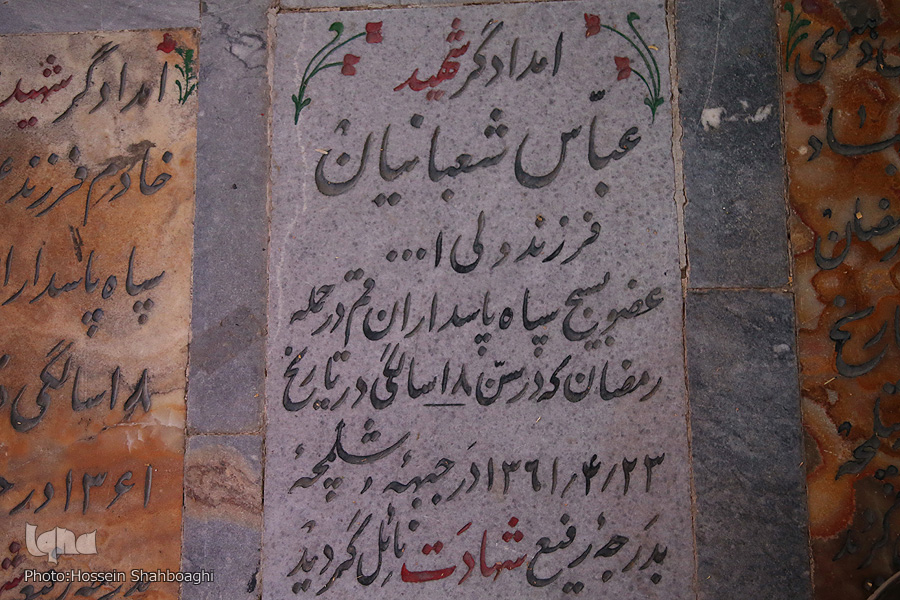 امدادگر شهید
عبّاس شعبانیان
فرزند ولی ا...
عضو بسیج سپاه پاسداران قم در حمله
رمضان که در سنّ ۱۸ سالگی در تاریخ
۱۳۶۱/۴/۲۳ در جبههٔ شلمچه
بدرجهٔ رفیع شهادت نائل گردید
امدادگر شهید
خادم فرزند
سپاه پاسداران
۱۸ سالگی
۱۳۶۱ در
رمضان
تاریخ
شلمچه
iqna
Photo:Hossein Shahboaghi